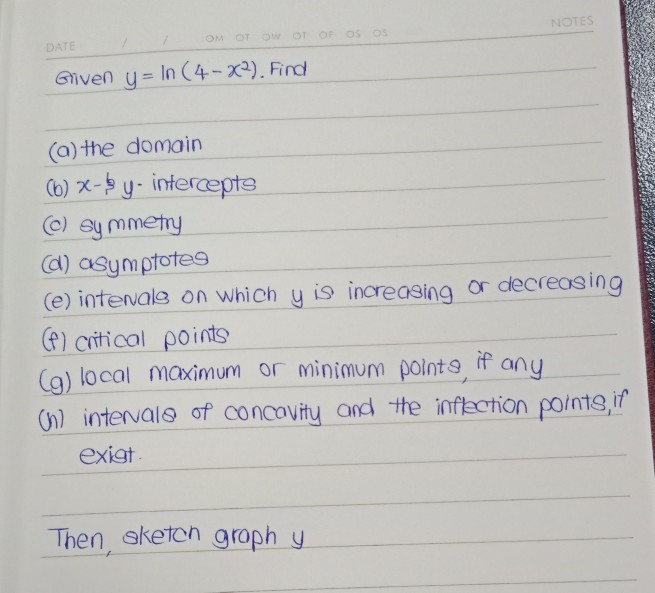 NOTES
DATE / / OM OT OW OT OF OS OS
Given y = ln (4 - x²). Find
(a) the domain
(b) x- & y- intercepts
(c) symmetry
(d) asymptotes
(e) intervals on which y is increasing or decreasing
(f) critical points
(g) local maximum or minimum points, if any
(h) intervals of concavity and the inflection points, if
exist.
Then, sketch graph y